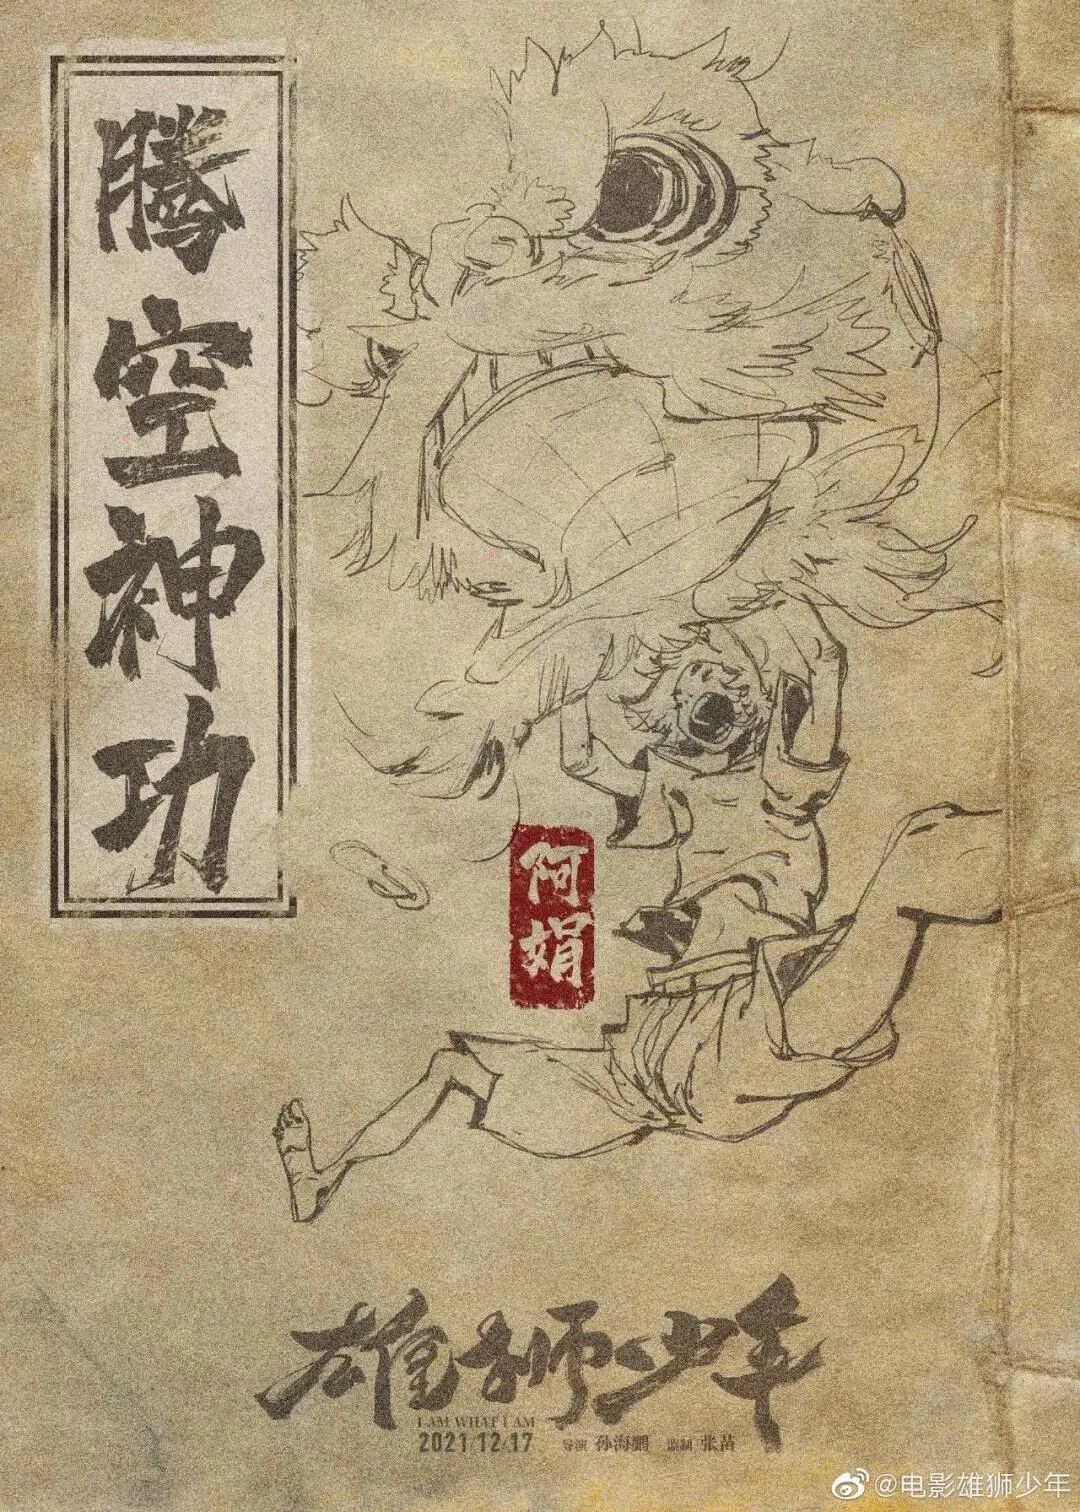 腾空神功
阿娟
雄狮少年
I AM WHAT I AM
2021/12/17 导演 孙海鹏 监制 张苗
@电影雄狮少年